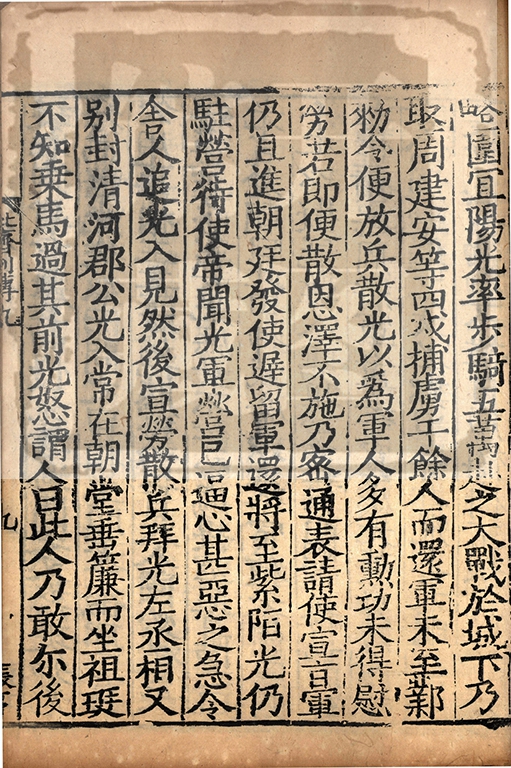 略圍宜陽光率步騎五萬赴之大戰於城下乃
取周建安等四戍捕虜千餘人而還軍未至鄴
勑令便放兵散光以爲軍人多有勳功未得慰
勞若即便散恩澤不施乃密通表請使宣旨軍
仍且進朝廷發使遲留軍還將至紫陌光仍
駐營待使帝聞光軍營已逼心甚惡之急令
舍人追光入見然後宣勞散兵拜光左丞相又
別封清河郡公光入常在朝堂垂簾而坐祖珽
不知乘馬過其前光怒謂人曰此人乃敢尔後
九